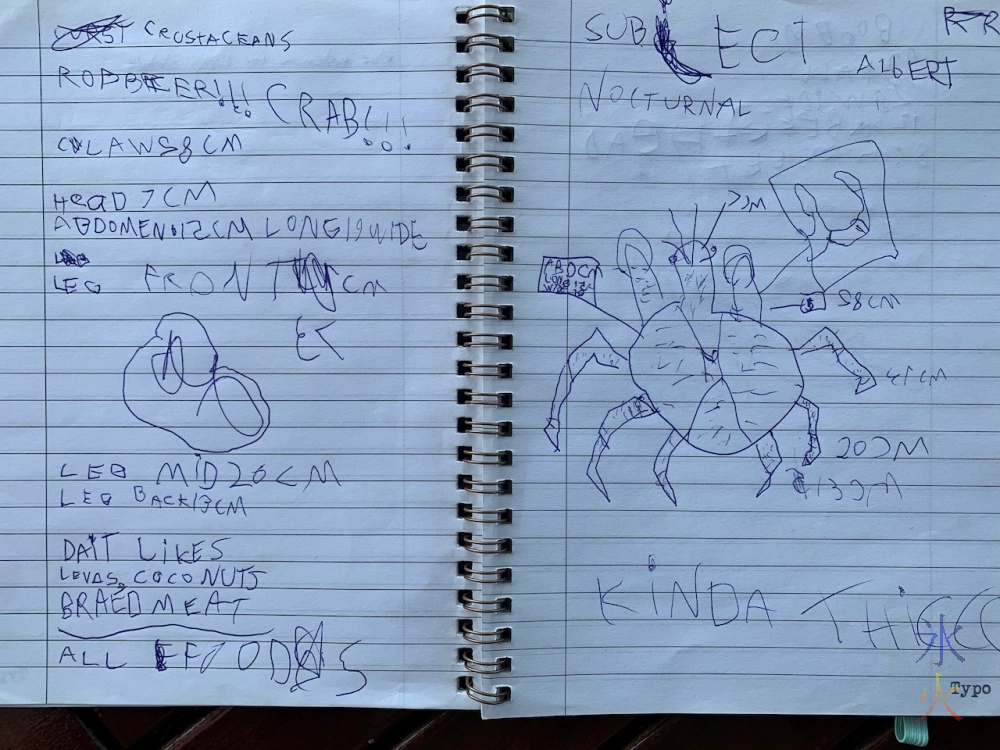 CRUSTACEANS
ROBBEER!!! CRAB!!!
CLAWS 8 CM
HEAD 7 CM
ABDOMEN 12CM LONG 19 WIDE
LEG FRONT CM
LEG MID 20 CM
LEG BACK 13CM
DAIT LIKES
LEVAS, COCONUTS
BRAED MEAT
ALL FFOODS
SUBJECT
ALBERT
NOCTURNAL
7CM
ABDCM
LONG 12
58CM
CM
20CM
13CM
KINDA THICC
Typo